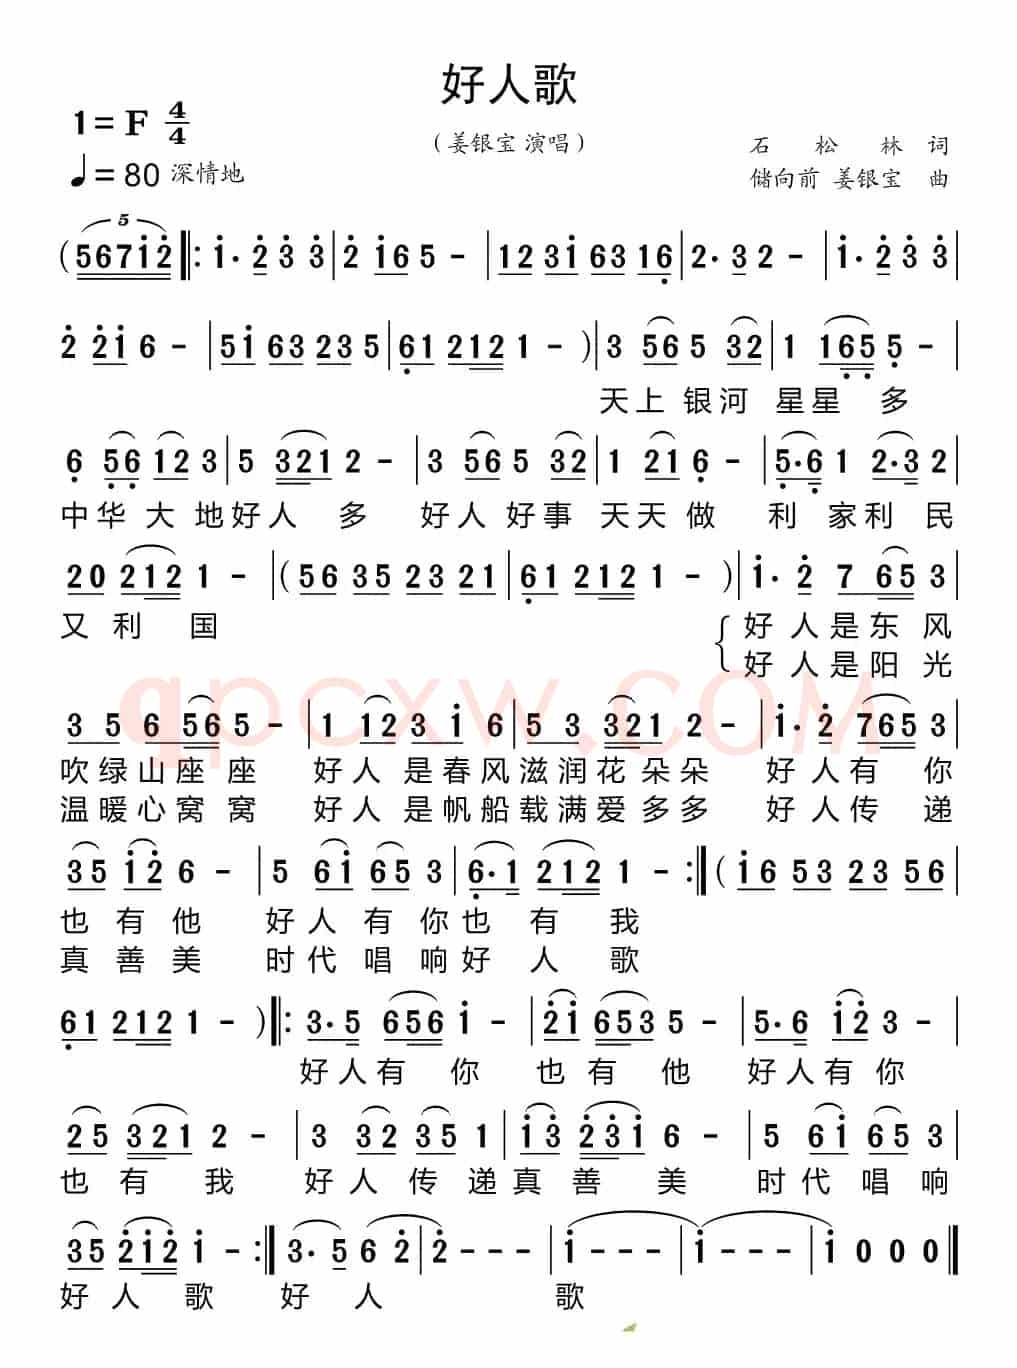 好人歌
1=F 4/4
（姜银宝 演唱）
石 松 林 词
♩=80 深情地
储向前 姜银宝 曲
5
(5671̇2̇ ‖: 1̇· 2̇ 3̇ 3̇ | 2̇ 1̇6 5 - | 12 31̇ 63 16̣ | 2· 3 2 - | 1̇· 2̇ 3̇ 3̇ |
2̇ 2̇1̇ 6 - | 51̇ 63 23 5 | 6̣1 212 1 - ) | 3 56 5 32 | 1 16̣5̣ 5̣ - |
天上 银河 星星 多
6̣ 5̣6̣ 12 3 | 5 321 2 - | 3 56 5 32 | 1 21 6̣ - | 5̣·6̣ 1 2·3 2 |
中华 大 地好人 多 好人 好事 天天 做 利 家利 民
20 212 1 - | (56 35 23 21 | 6̣1 212 1 - ) | 1̇· 2̇ 7 65 3 |
又 利 国 好 人 是东 风
好 人 是阳 光
qpcxw.COM
3 5 6 56 5 - | 1 12 3 1̇ 6 | 5 3 321 2 - | 1̇· 2̇ 765 3 |
吹绿山座 座 好人 是春风滋润花 朵朵 好 人有 你
温暖心窝 窝 好人 是帆船载满爱 多多 好 人传 递
35 1̇2̇ 6 - | 5 61̇ 65 3 | 6̣·1 212 1 - :‖ (1̇6 53 23 56 |
也 有 他 好人 有 你也 有 我
真 善 美 时代 唱 响好 人 歌
6̣1 212 1 - ) ‖: 3· 5 656 1̇ - | 2̇1̇ 653 5 - | 5· 6 1̇2̇ 3 - |
好人有 你 也 有 他 好人有 你
25 321 2 - | 3 32 35 1 | 1̇3̇ 2̇3̇1̇ 6 - | 5 61̇ 65 3 |
也 有 我 好人 传 递真 善 美 时代 唱 响
35 2̇1̇2̇ 1̇ - :‖ 3· 5 6 2̇ | 2̇ - - - | 1̇ - - - | 1̇ - - - | 1̇ 0 0 0 ‖
好 人 歌 好 人 歌